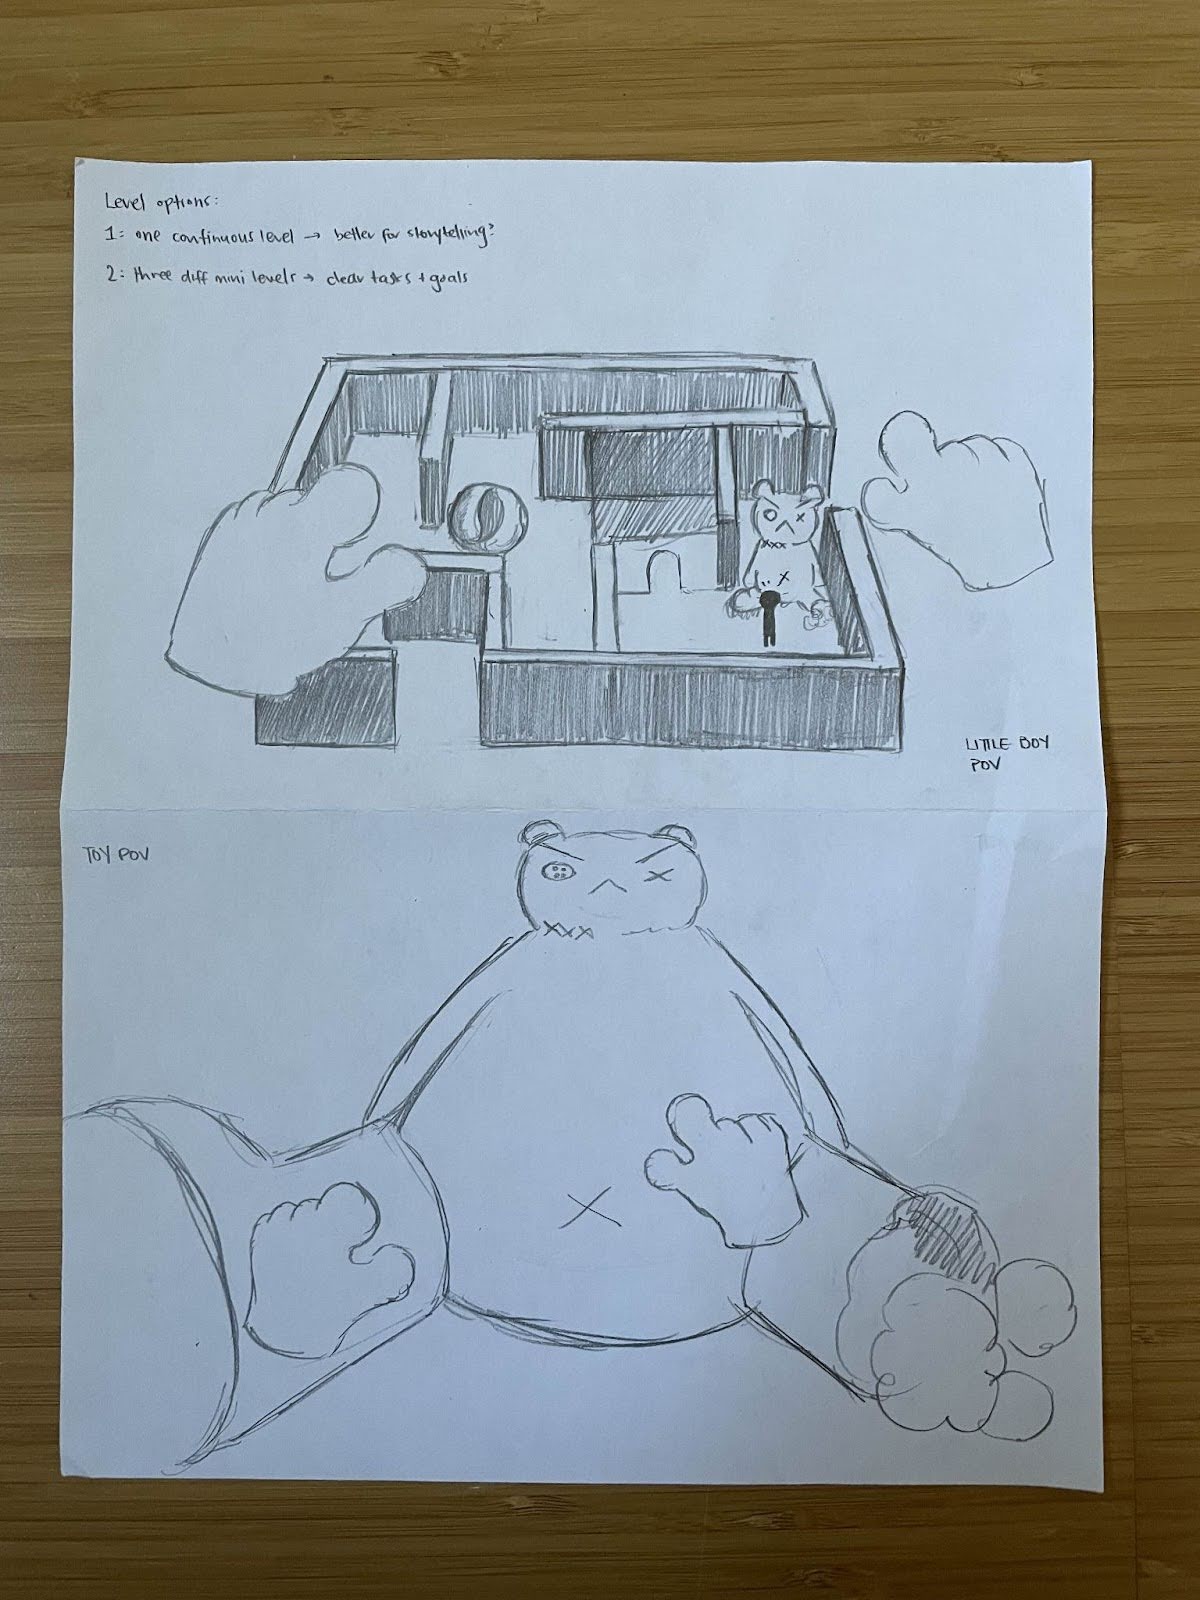 Level options:
1: one continuous level → better for storytelling?
2: three diff mini levels → clear tasks + goals
LITTLE BOY
POV
TOY POV